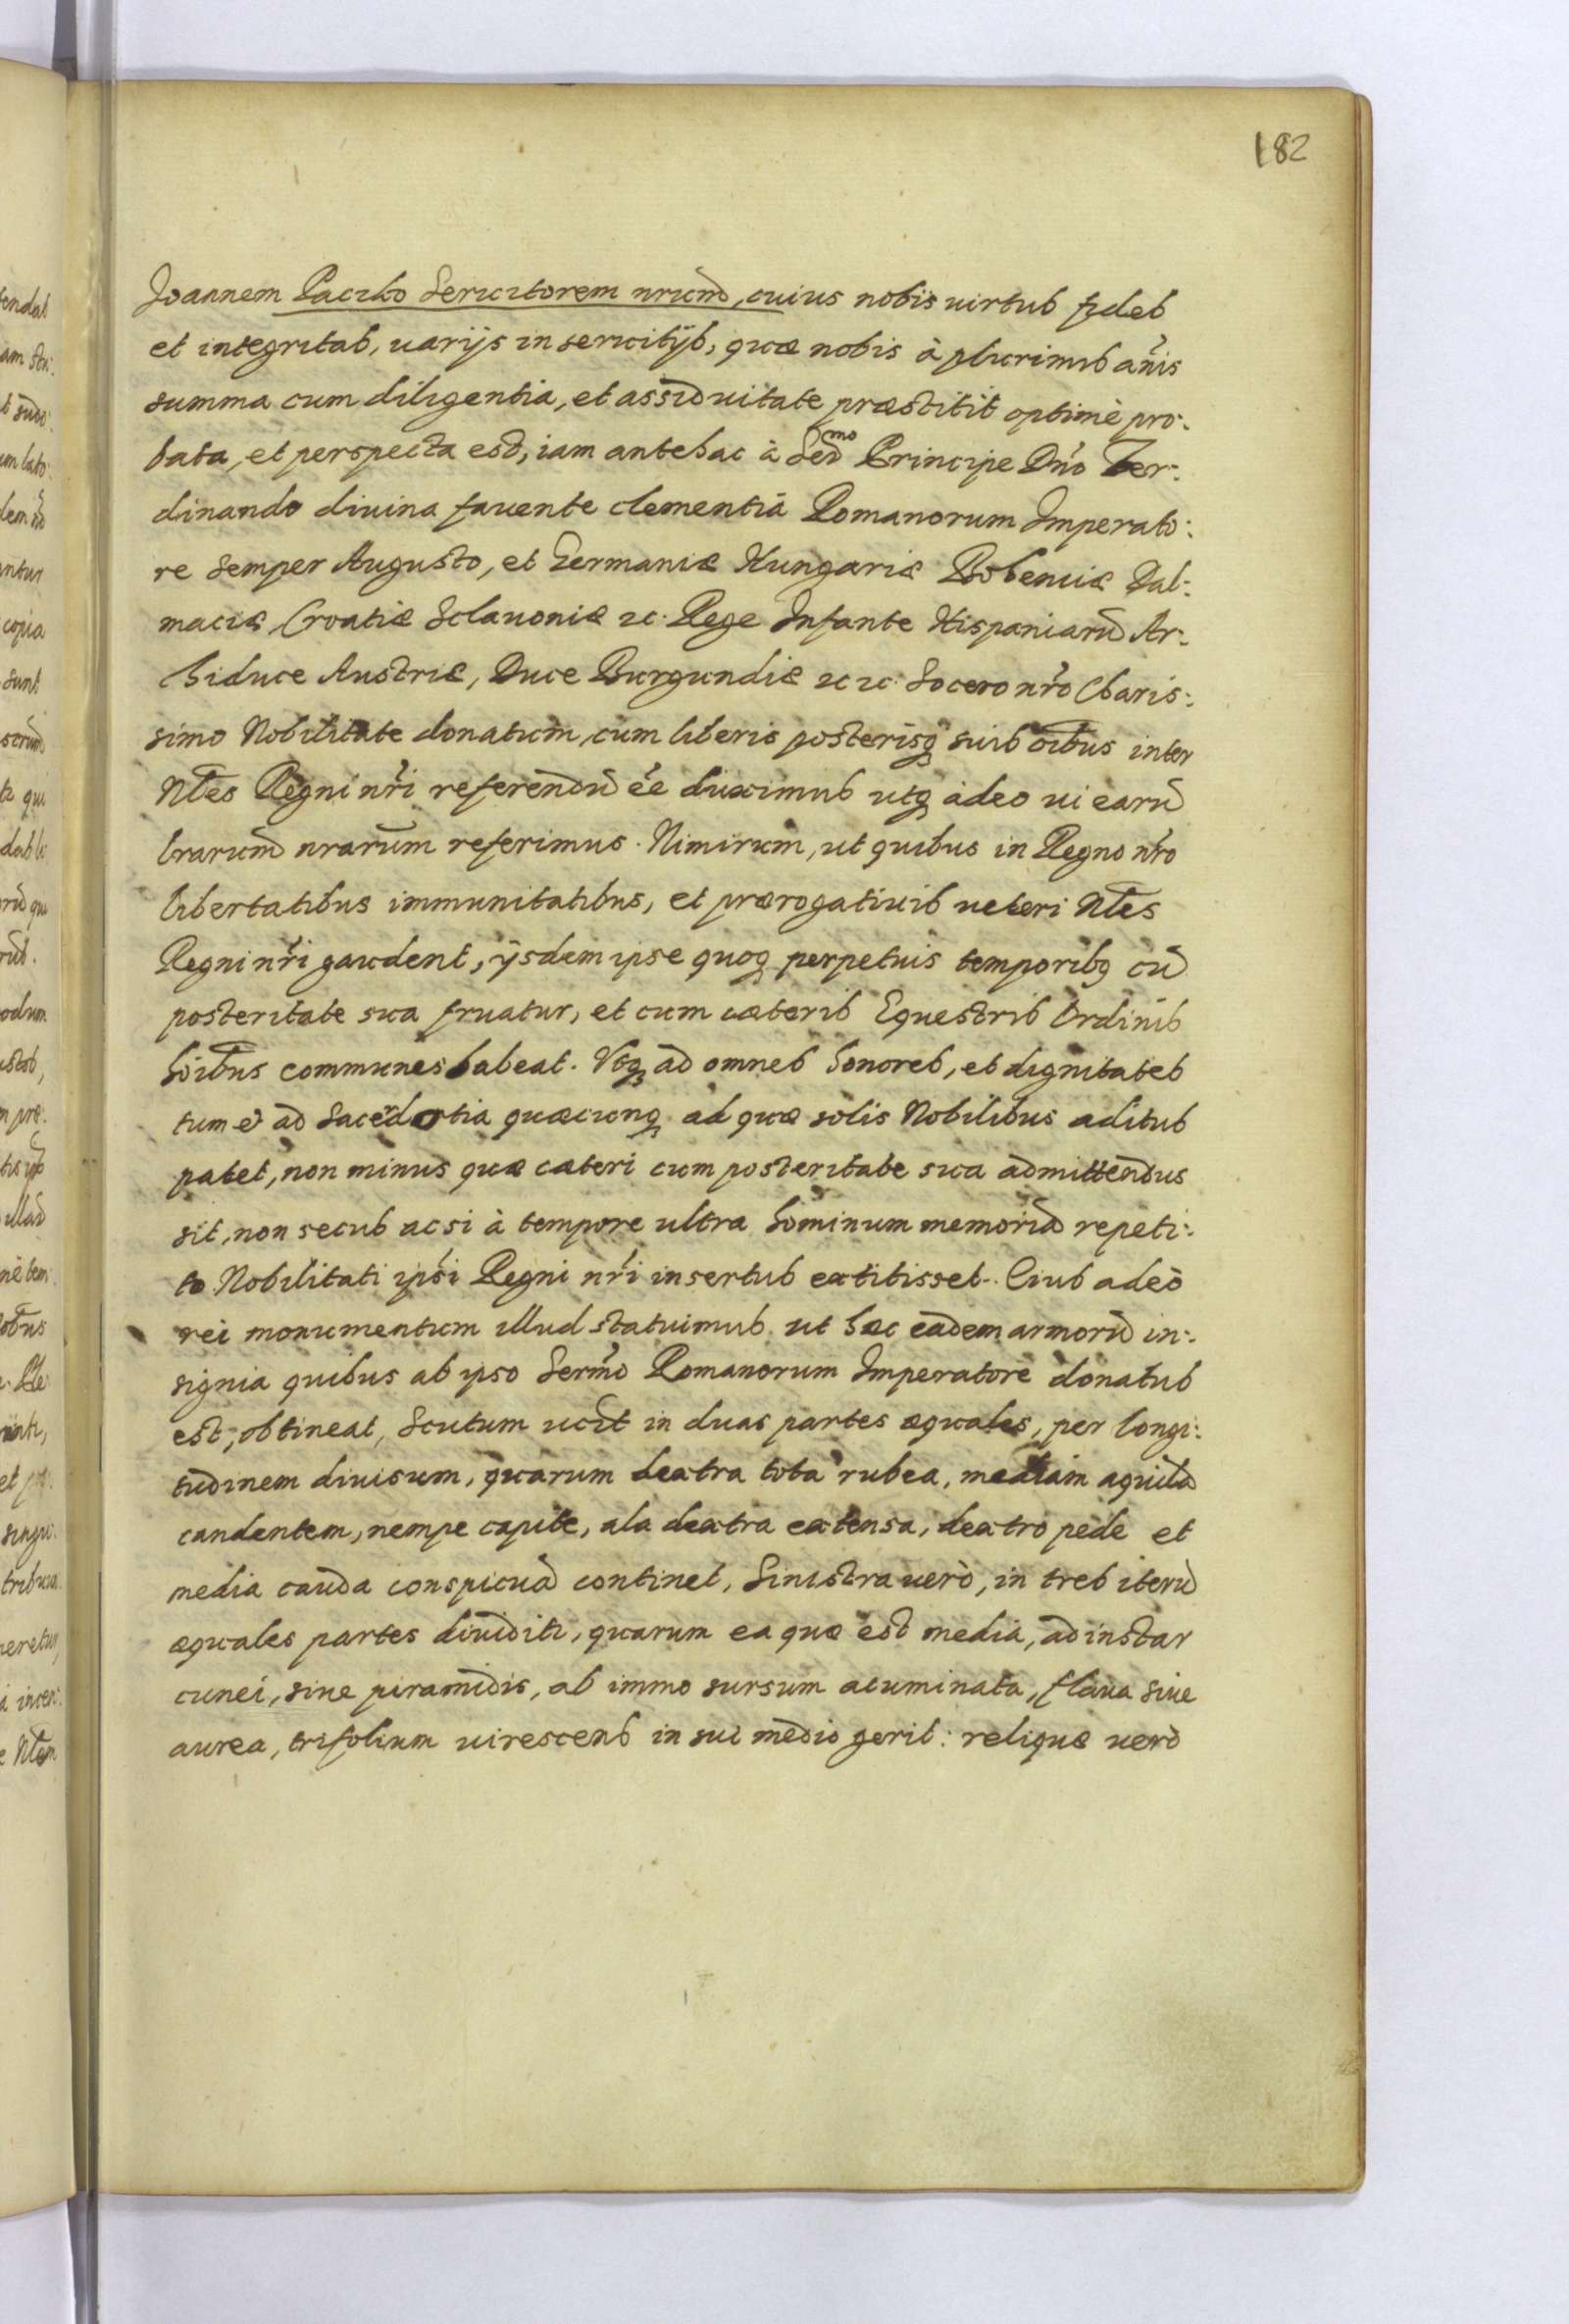 182
Joannem Paczko Seruitorem nrum̃, cuius nobis uirtus fides
et integritas, uarijs in seruitijs, quæ nobis à plurimis an̄is
summa cum diligentia, et assiduitate præstitit optimè pro:
bata, et perspecta est, iam antehac à Serᵐᵒ Principe Dn̄o Fer:
dinando diuina fauente clementiâ Romanorum Imperato:
re semper Augusto, et Germaniæ Hungariæ Bohemiæ Dal:
maciæ, Croatiæ Sclauoniæ ꝛc. Rege Infante Hispaniarũ Ar:
hiduce Austriæ, Duce Burgundiæ ꝛc ꝛc. Socero nr̃o Charis:
simo Nobilitate donatum, cum liberis posterisq̃ suis oĩbus inter
Nt̃es Regni nr̃i referendũ eẽ duximus utq̃ adeo ui earũ
lrarum̃ nrarum̃ referimus. Nimirum, ut quibus in Regno nr̃o
libertatibus immunitatibus, et prærogatiuis ueteri Nt̃es
Regni nr̃i gaudent, ijsdem ipse quoq̃ perpetuis temporibq̃ cũ
posteritate sua fruatur, et cum cæteris Equestris Ordinis
hoĩbus communes habeat. Vtq̃ ad omnes honores, et dignitates
tum & ad Sacerdotia quæcunq̃ ad quæ solis Nobilibus aditus
patet, non minus quæ cæteri cum posteritate sua admittendus
sit, non secus ac si à tempore ultra hominum memoriã repeti:
to Nobilitati ipsi Regni nr̃i insertus extitisset. Cius adeò
rei monumentum illud statuimus ut hæc eadem armorũ in:
signia quibus ab ipso Serm̃o Romanorum Imperatore donatus
est, obtineat, Scutum ucit in duas partes æquales, per longi:
tudinem diuisum, quarum dextra tota rubea, mediam aquilã
candentem, nempe capite, ala dextra extensa, dextro pede et
media cauda conspicuã continet, Sinistra uerò, in tres iterũ
æquales partes diuiditr, quarum ea quæ est media, ad instar
cunei, siue piramidis, ab immo sursum acuminata, flaua siue
aurea, trifolium uirescens in sui medio gerit: reliquæ uerò